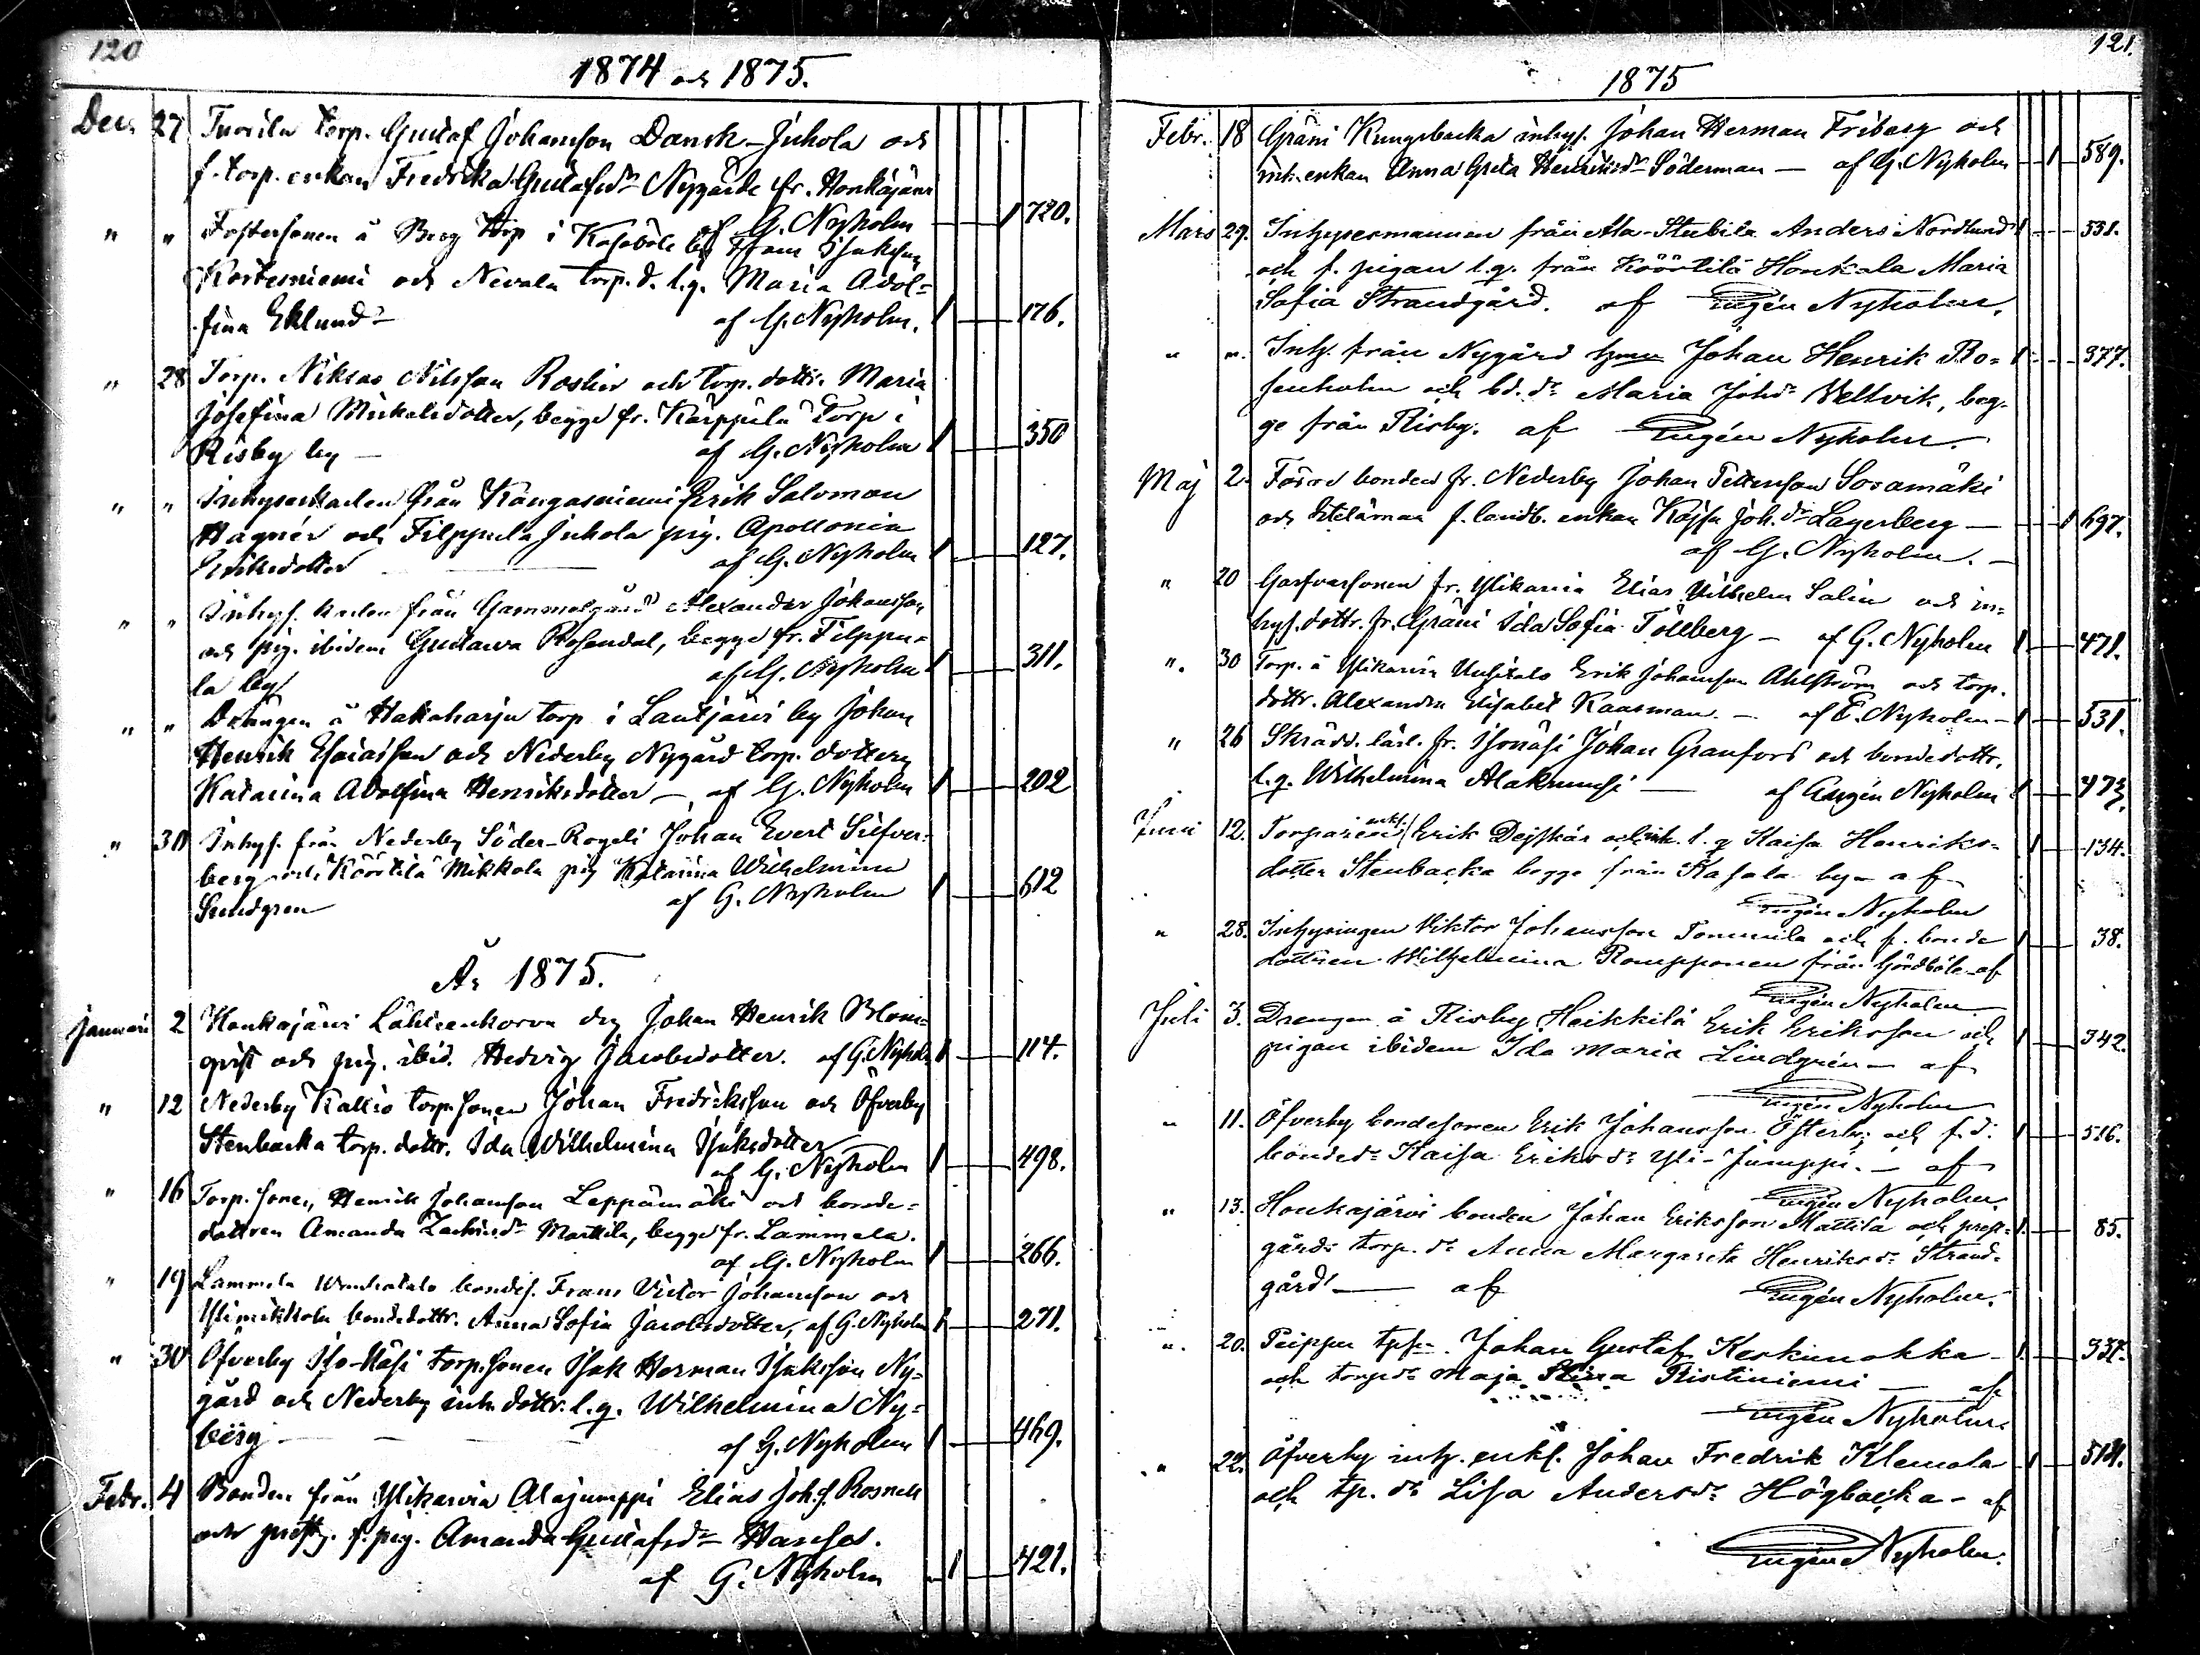 120
1874 och 1875.
Decr 27 Tuorila torp. Gustaf Johansson Dansk-Juhola och
f. torp. enkan Fredrika Gustafsdr Nygårds fr. Honkajärvi
af G. Nyholm 1 720.
" " Fostersonen å Berg torp i Kasaböle by Frans Isaksson
Koskesniemi och Nevala torp. d. l.q. Maria Adol=
fina Eklund af G. Nyholm. 1 176.
" 28 Torp. Niklas Nilsson Roslin och torp. dottr. Maria
Josefina Mickelsdotter, begge fr. Karppila torp i
Risby by — af G. Nyholm 1 350
" " Inhyseskarlen från Kangasniemi Erik Salomon
Hagnér och Filppula Juhola pig. Apollonia
Eriksdotter af G. Nyholm 1 127.
" " Inhys. karlen från Gammelgård Alexander Johansson
och pig. ibidem Gustava Rosendal, begge fr. Filppu=
la by af G. Nyholm 1 311.
" " Drängen å Hakaharju torp i Lautjärvi by Johan
Henrik Esaiasson och Nederby Nygård torp. dottern
Katarina Adolfina Henriksdotter — af G. Nyholm 1 202
" 30 Inhys. från Nederby Söder-Rogeli Johan Evert Silfver=
berg och Köörtilä Mikkola pig Katarina Wilhelmina
Sundgren af G. Nyholm 1 612
År 1875.
Januari 2 Honkajärvi Lähteenkorva drg Johan Henrik Blom=
qvist och pig. ibid. Hedvig Jacobsdotter. af G. Nyholm 1 114.
" 12 Nederby Kallio torp. sonen Johan Fredriksson och Öfverby
Stenbacka torp. dottr. Ida Wilhelmina Isaksdotter
af G. Nyholm 1 498.
" 16 Torp. sonen, Henrik Johansson Leppämäki och bonde=
dottren Amanda Zachrisdr Marttila, begge fr. Lammela.
af G. Nyholm 1 266.
" 19 Lammela bondes. Frans Victor Johansson och
bondedottr. Anna Sofia Jacobsdotter, af G. Nyholm 1 271.
" 30 Öfverby Iso-Käsi torp. sonen Isak Herman Isaksson Ny=
gård och Nederby inh. dottr. l.q. Wilhelmina Ny=
berg — af G. Nyholm 1 469.
Febr. 4 Bonden från Ylikarvia Alajumppi Elias Joh. s. Rosnell
och prestg. f. pig. Amanda Gustafsdr Hanses.
af G. Nyholm 1 421.
121.
1875
Febr. 18 Gräni Kungsbacka inhys. Johan Herman Friberg och
inh. enkan Anna Greta Henriksdr Söderman — af G. Nyholm 1 589.
Mars 29. Inhysesmannen från Ala-Stubila Anders Nordlund 1 551.
och f. pigan l.q. från Köörtilä Honkala Maria
Sofia Strandgård. af Eugén Nyholm.
" " Inh. från Nygård Johan Henrik Ro= 1 377.
senholm och bd. dr Maria Johdr Vellvik, beg=
ge från Risby. af Eugén Nyholm.
Maj 2. Förre bonden fr. Nederby Johan Pettersson Soramäki
och f. landb. enkan Kajsa Joh. dr Lagerberg — 1 697.
af G. Nyholm. —
" 20 Garfvarsonen fr. Ylikarvia Elias Vilhelm Salin och in=
hys. dottr. fr. Gräni Ida Sofia Töllberg — af G. Nyholm 1 471.
" 30 Torp. å Ylikarvia Uusitalo Erik Johansson Ahlström och torp.
dottr. Alexandra Elisabet Kaasman. — af E. Nyholm — 1 531.
" 26 Skrädd. lärl. fr. Johan Granfors och bondedottr.
l.q. Wilhelmina Alakruusi — af Eugén Nyholm 1
Juni 12. Torparen enkl. Erik Dejskär och ink. l.q Kaisa Henriks= 1 134.
dotter Stenbacka begge från Kasala by — af
Eugén Nyholm
" 28. Inhysingen Viktor Johansson Tommila och f. bonde 1 38.
dottren Wilhelmina Rompponen från Gördböle — af
Eugén Nyholm
Juli 3. Drengen å Risby Heikkilä Erik Eriksson och 1 342.
pigan ibidem Ida Maria Lindgrén — af
Eugén Nyholm
" 11. Öfverby bondesonen Erik Johansson Österby och f.d. 1 516.
bonded: Kaisa Eriksdr Yli-Jumppi. — af
Eugén Nyholm.
" 13. Honkajärvi bonden Johan Eriksson Mattila och prest= 1 85.
gårds torp. dr Anna Margareta Henriksdr Strand=
gård — af Eugén Nyholm.
" 20. Peippu Johan Gustaf Keskinokka — 1 337.
och torpdr Maja Stina Ristiniemi — af
Eugén Nyholm.
" 22. Öfverby inh. enkl. Johan Fredrik Klemola 1 514.
och tp. dr Lisa Andersdr Högbacka — af
Eugén Nyholm.